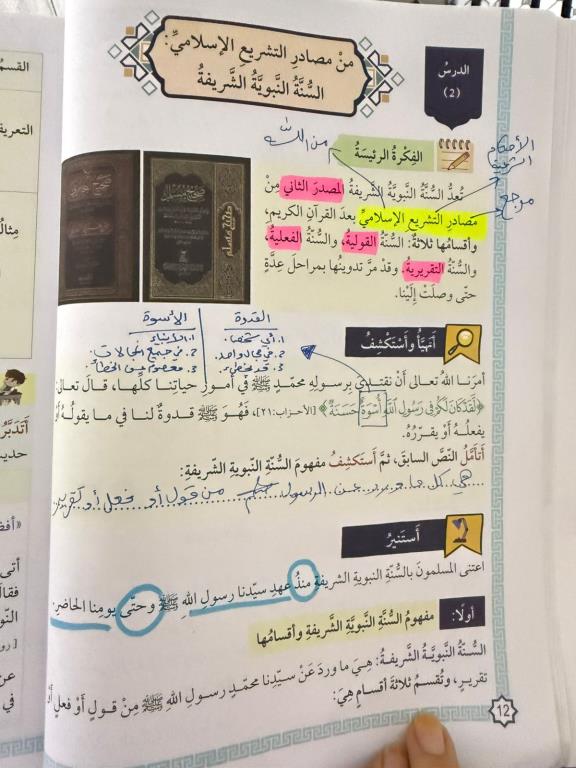 الدرسُ
(2)
مِنْ مصادرِ التشريعِ الإسلاميِّ:
السُّنَّةُ النَّبويَّةُ الشَّريفةُ
الأحكام
الشرعية
مرجع
من الله
الفِكْرةُ الرئيسَةُ
تُعدُّ السُّنَّةُ النبويَّةُ الشريفةُ المصدرَ الثاني مِنْ
مصادرِ التشريعِ الإسلاميِّ بعدَ القرآنِ الكريمِ،
وأقسامُها ثلاثةٌ: السنَّةُ القوليةُ، والسنَّةُ الفعليةُ،
والسنَّةُ التقريريةُ. وقدْ مرَّ تدوينُها بمراحلَ عِدَّةٍ
حتى وصلتْ إلَيْنا.
صحيح مسلم
القدوة
1. أي شخص
2. في مجال واحد
3. قد يخطئ
الأسوة
1. الأنبياء
2. في جميع المجالات
3. معصوم من الخطأ
أتهيَّأُ وَأَسْتَكْشِفُ
أمرَنا اللهُ تعالى أنْ نقتديَ برسولِهِ محمّدٍ ﷺ في أمورِ حياتِنا كلِّها، قالَ تعالى:
﴿لَّقَدْ كَانَ لَكُمْ فِي رَسُولِ اللَّهِ أُسْوَةٌ حَسَنَةٌ﴾ [الأحزاب: ٢١]، فَهُوَ ﷺ قدوةٌ لنا في ما يقولُهُ أَوْ
يفعلُهُ أَوْ يقرّرُهُ.
أَتَأَمَّلُ النَّصَّ السابقَ، ثمَّ أَسْتَكْشِفُ مفهومَ السُّنَّةِ النبويةِ الشريفةِ:
هي كل ما ورد عن الرسول ﷺ من قول أو فعل أو تقرير
أَسْتَنيرُ
اعتنى المسلمونَ بالسُّنَّةِ النبويةِ الشريفةِ منذُ عهدِ سيّدِنا رسولِ اللهِ ﷺ وحتّى يومِنا الحاضرِ.
أولًا: مفهومُ السُّنَّةِ النَّبويَّةِ الشَّريفةِ وأقسامُها
السُّنّةُ النَّبويَّةُ الشَّريفةُ: هِيَ ما وردَ عَنْ سيِّدِنا محمّدٍ رسولِ اللهِ ﷺ مِنْ قولٍ أَوْ فعلٍ أَوْ
تقريرٍ، وتُقسمُ ثلاثةَ أقسامٍ هِيَ:
12
القسمُ